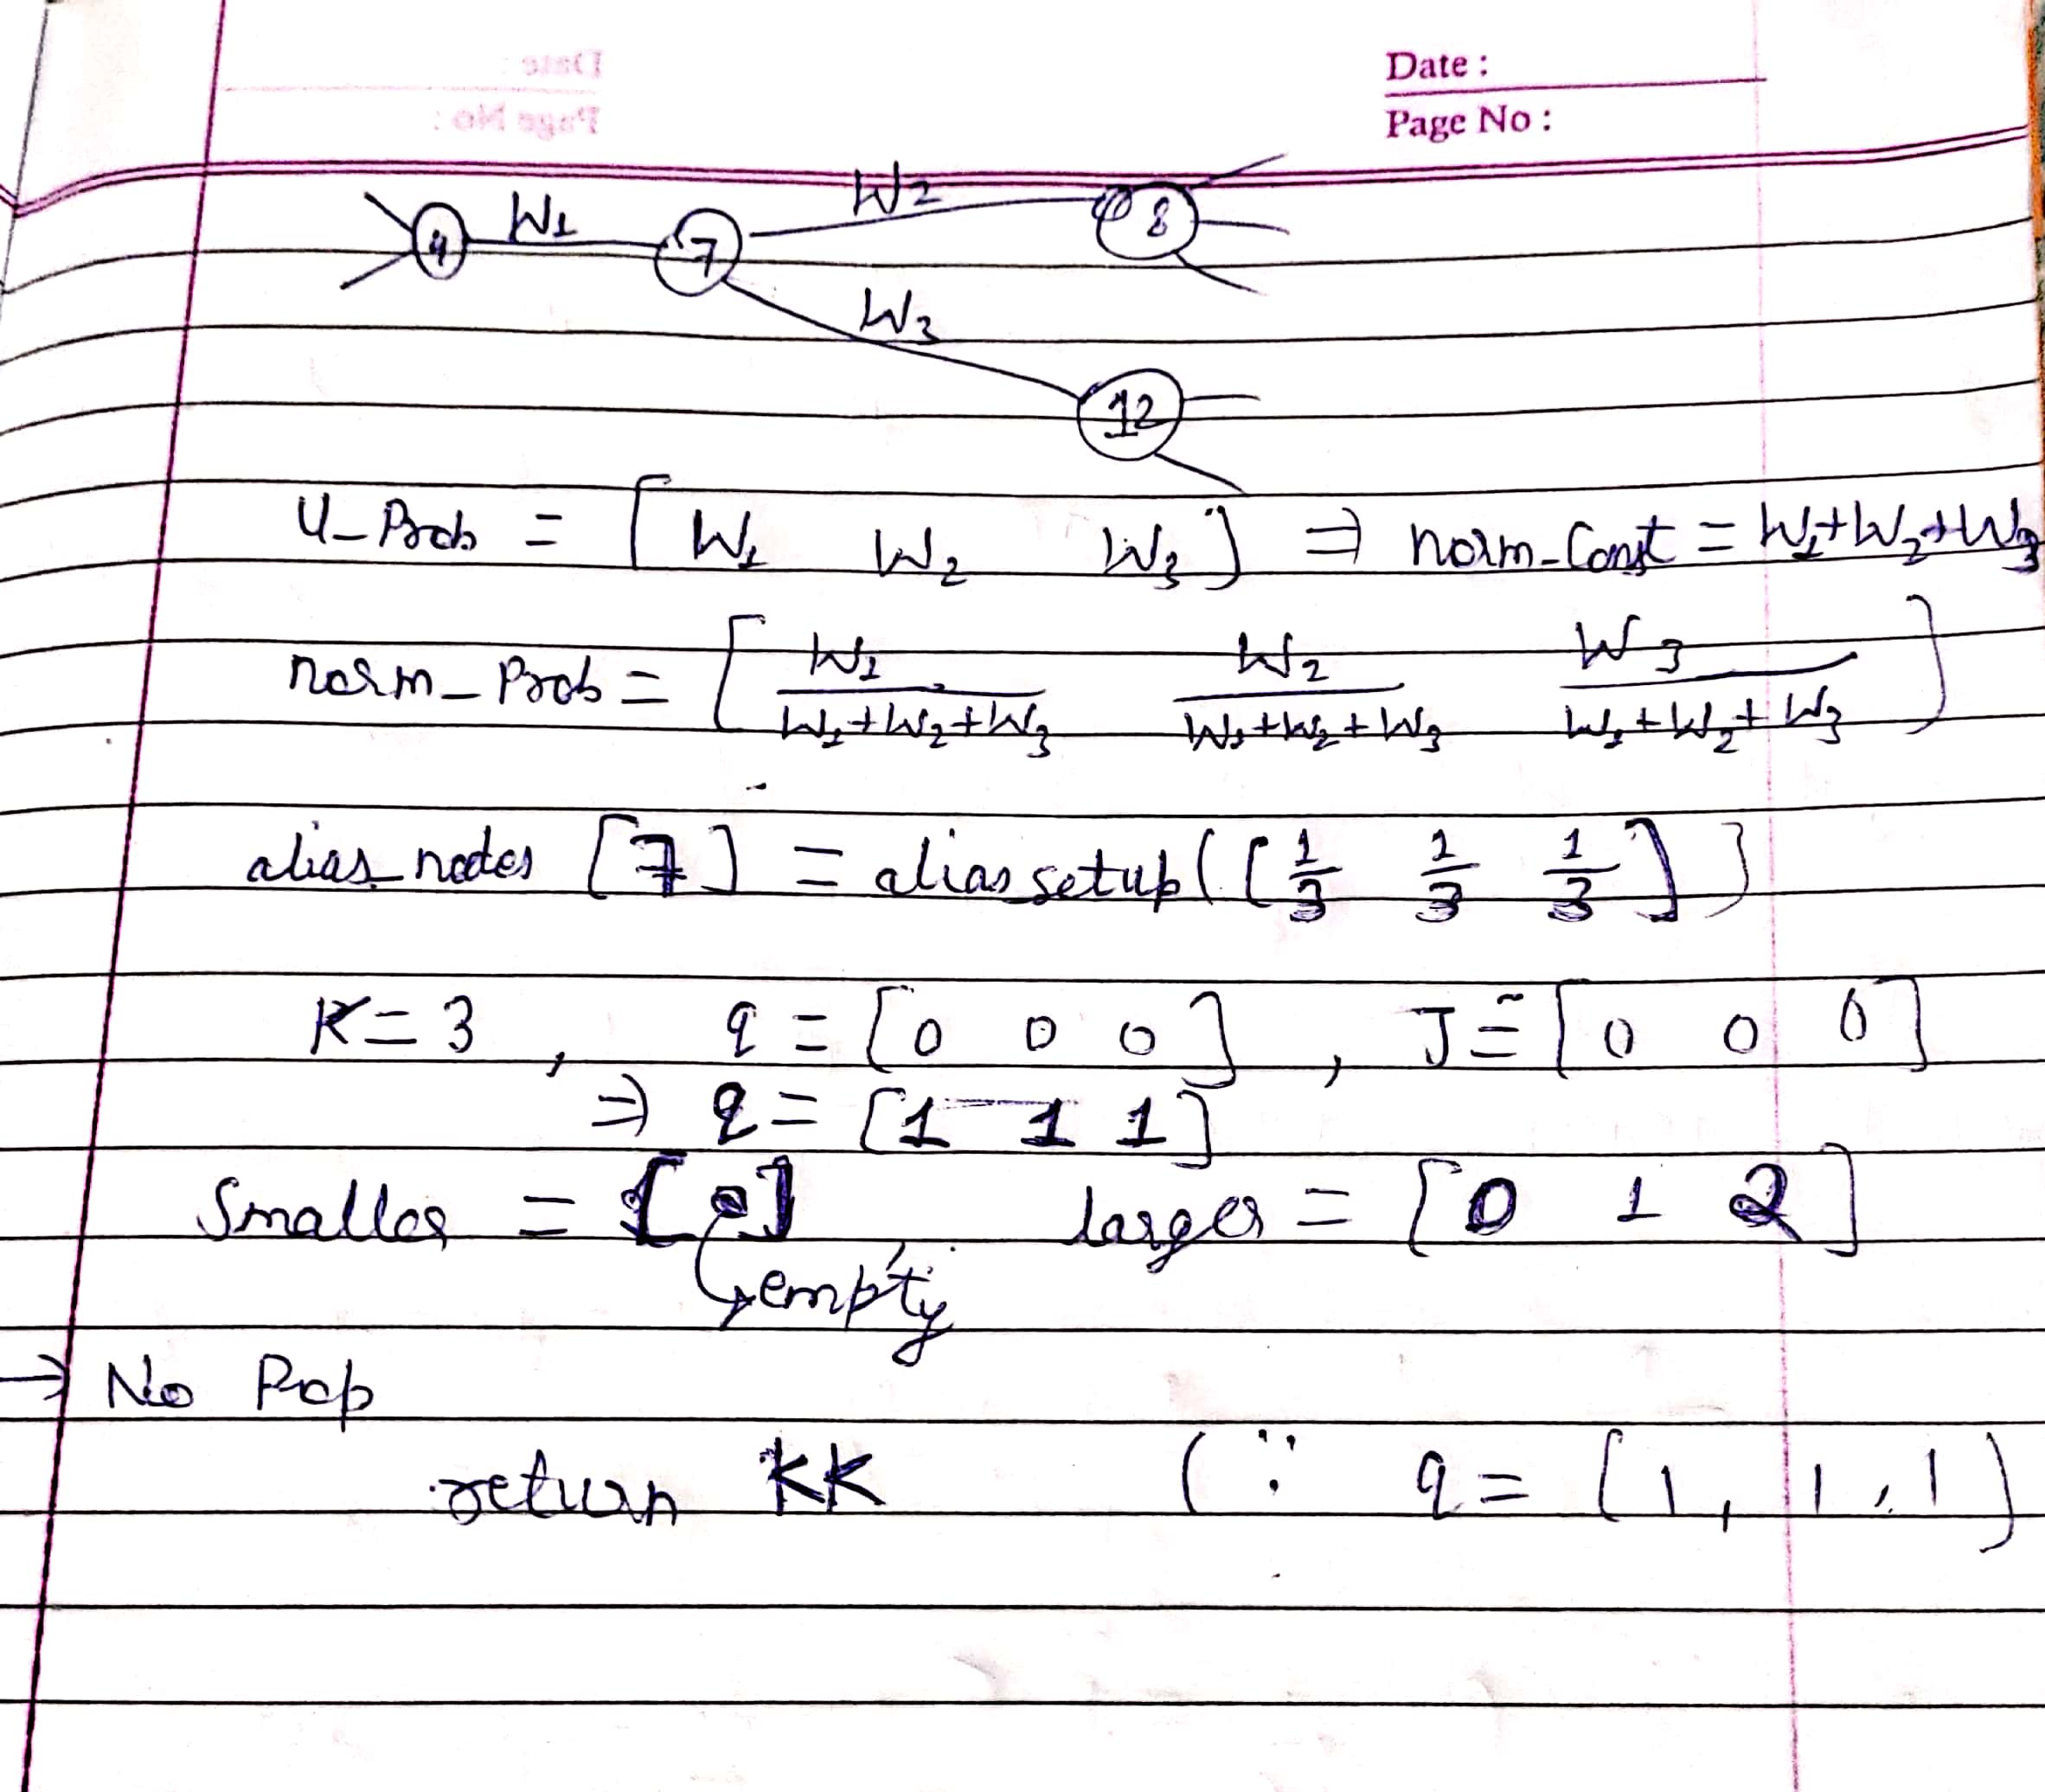 Date :
Page No :
4 W1 7 W2 8
W3
12
U_Prob = [ W1 W2 W3 ] ⇒ norm_Const = W1+W2+W3
norm_Prob = [ W1/(W1+W2+W3) W2/(W1+W2+W3) W3/(W1+W2+W3) ]
alias_nodes [7] = alias setup( [ 1/3 1/3 1/3 ] )
K = 3 , q = [0 0 0] , J = [0 0 0]
⇒ q = [1 1 1]
Smaller = [ ] larger = [0 1 2]
↳ empty
→ No Pop
return KK (∵ q = (1, 1, 1)